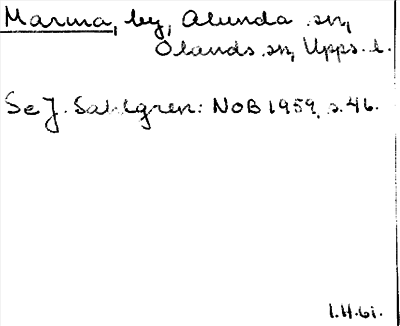 Marma, by, Alunda sn,
Olands sn, Upps. l.
Se J. Sahlgren: NOB 1959, s. 46.
1.H.61.